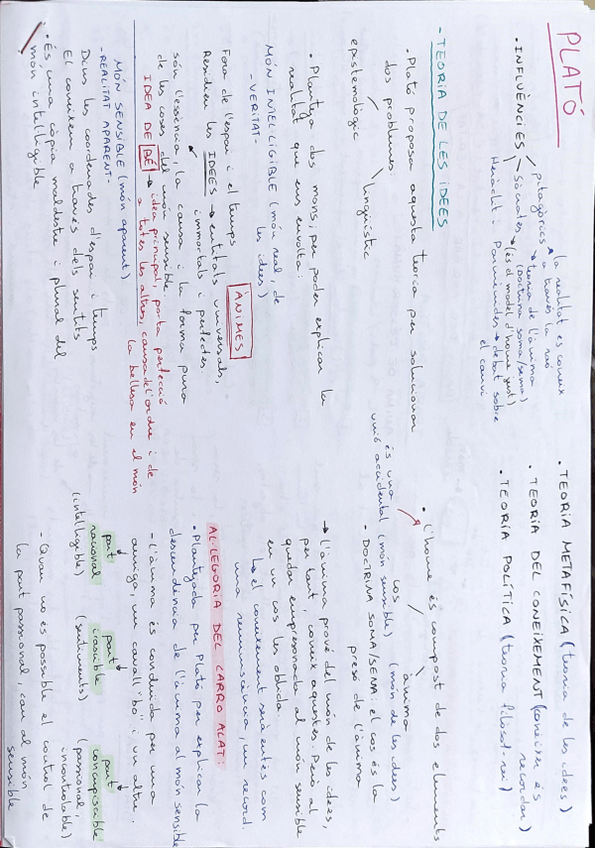 PLATÓ
la realitat es coneix
a través la raó
pitagòrics
teoria de l'ànima
(doctrina soma/sema)
• INFLUÈNCIES
Sòcrates → (és el model d'home just)
Heràclit i Parmènides → debat sobre
el canvi
• TEORIA METAFÍSICA (teoria de les idees)
• TEORIA DEL CONEIXEMENT (conèixer és
recordar)
• TEORIA POLÍTICA (teoria filòsof-rei)
- TEORIA DE LES IDEES
• Plató proposa aquesta teoria per solucionar
dos problemes:
lingüístic
epistemològic
• Planteja dos mons, per poder explicar la
realitat que ens envolta:
MÓN INTEL·LIGIBLE (món real, de
les idees)
- VERITAT -
ÀNIMES
Fora de l'espai i el temps
Resideixen les IDEES → entitats universals,
immortals i perfectes
són l'essència, la causa i la forma pura
de les coses del món sensible
IDEA DE BÉ → idea principal, porta perfecció
a totes les altres, causa de l'ordre i de
la bellesa en el món
MÓN SENSIBLE (món aparent)
- REALITAT APARENT -
Dins les coordenades d'espai i temps
El coneixem a través dels sentits
• És una còpia maldestre i plural del
món intel·ligible
• L'home és compost de dos elements
cos
(món sensible)
ànima
(món de les idees)
és una
unió accidental
- DOCTRINA SOMA/SEMA: el cos és la
presó de l'ànima
→ L'ànima prové del món de les idees,
per tant, coneix aquestes. Però al
quedar empresonada al món sensible
en un cos les oblida.
↳ el coneixement serà entès com
una reminiscència, un record.
AL·LEGORIA DEL CARRO ALAT:
• Plantejada per Plató per explicar la
descendència de l'ànima al món sensible
- L'ànima és conduïda per una
auriga, un cavall bo i un altre.
part
racional
(intel·ligible)
part
irascible
(sentiments)
part
concupiscible
(passional,
incontrolable)
- Quan no és possible el control de
la part passional, cau al món
sensible